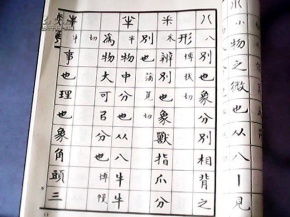 小物之微也从八丨見
八 八 別也象分別相背之
形 博拔切
釆 釆 辨別也象獸指爪分
別也 蒲莧切
半 半 物中分也从八牛牛
為物大可㠯分也 博幔
切
牛 牛 事也理也象角頭三